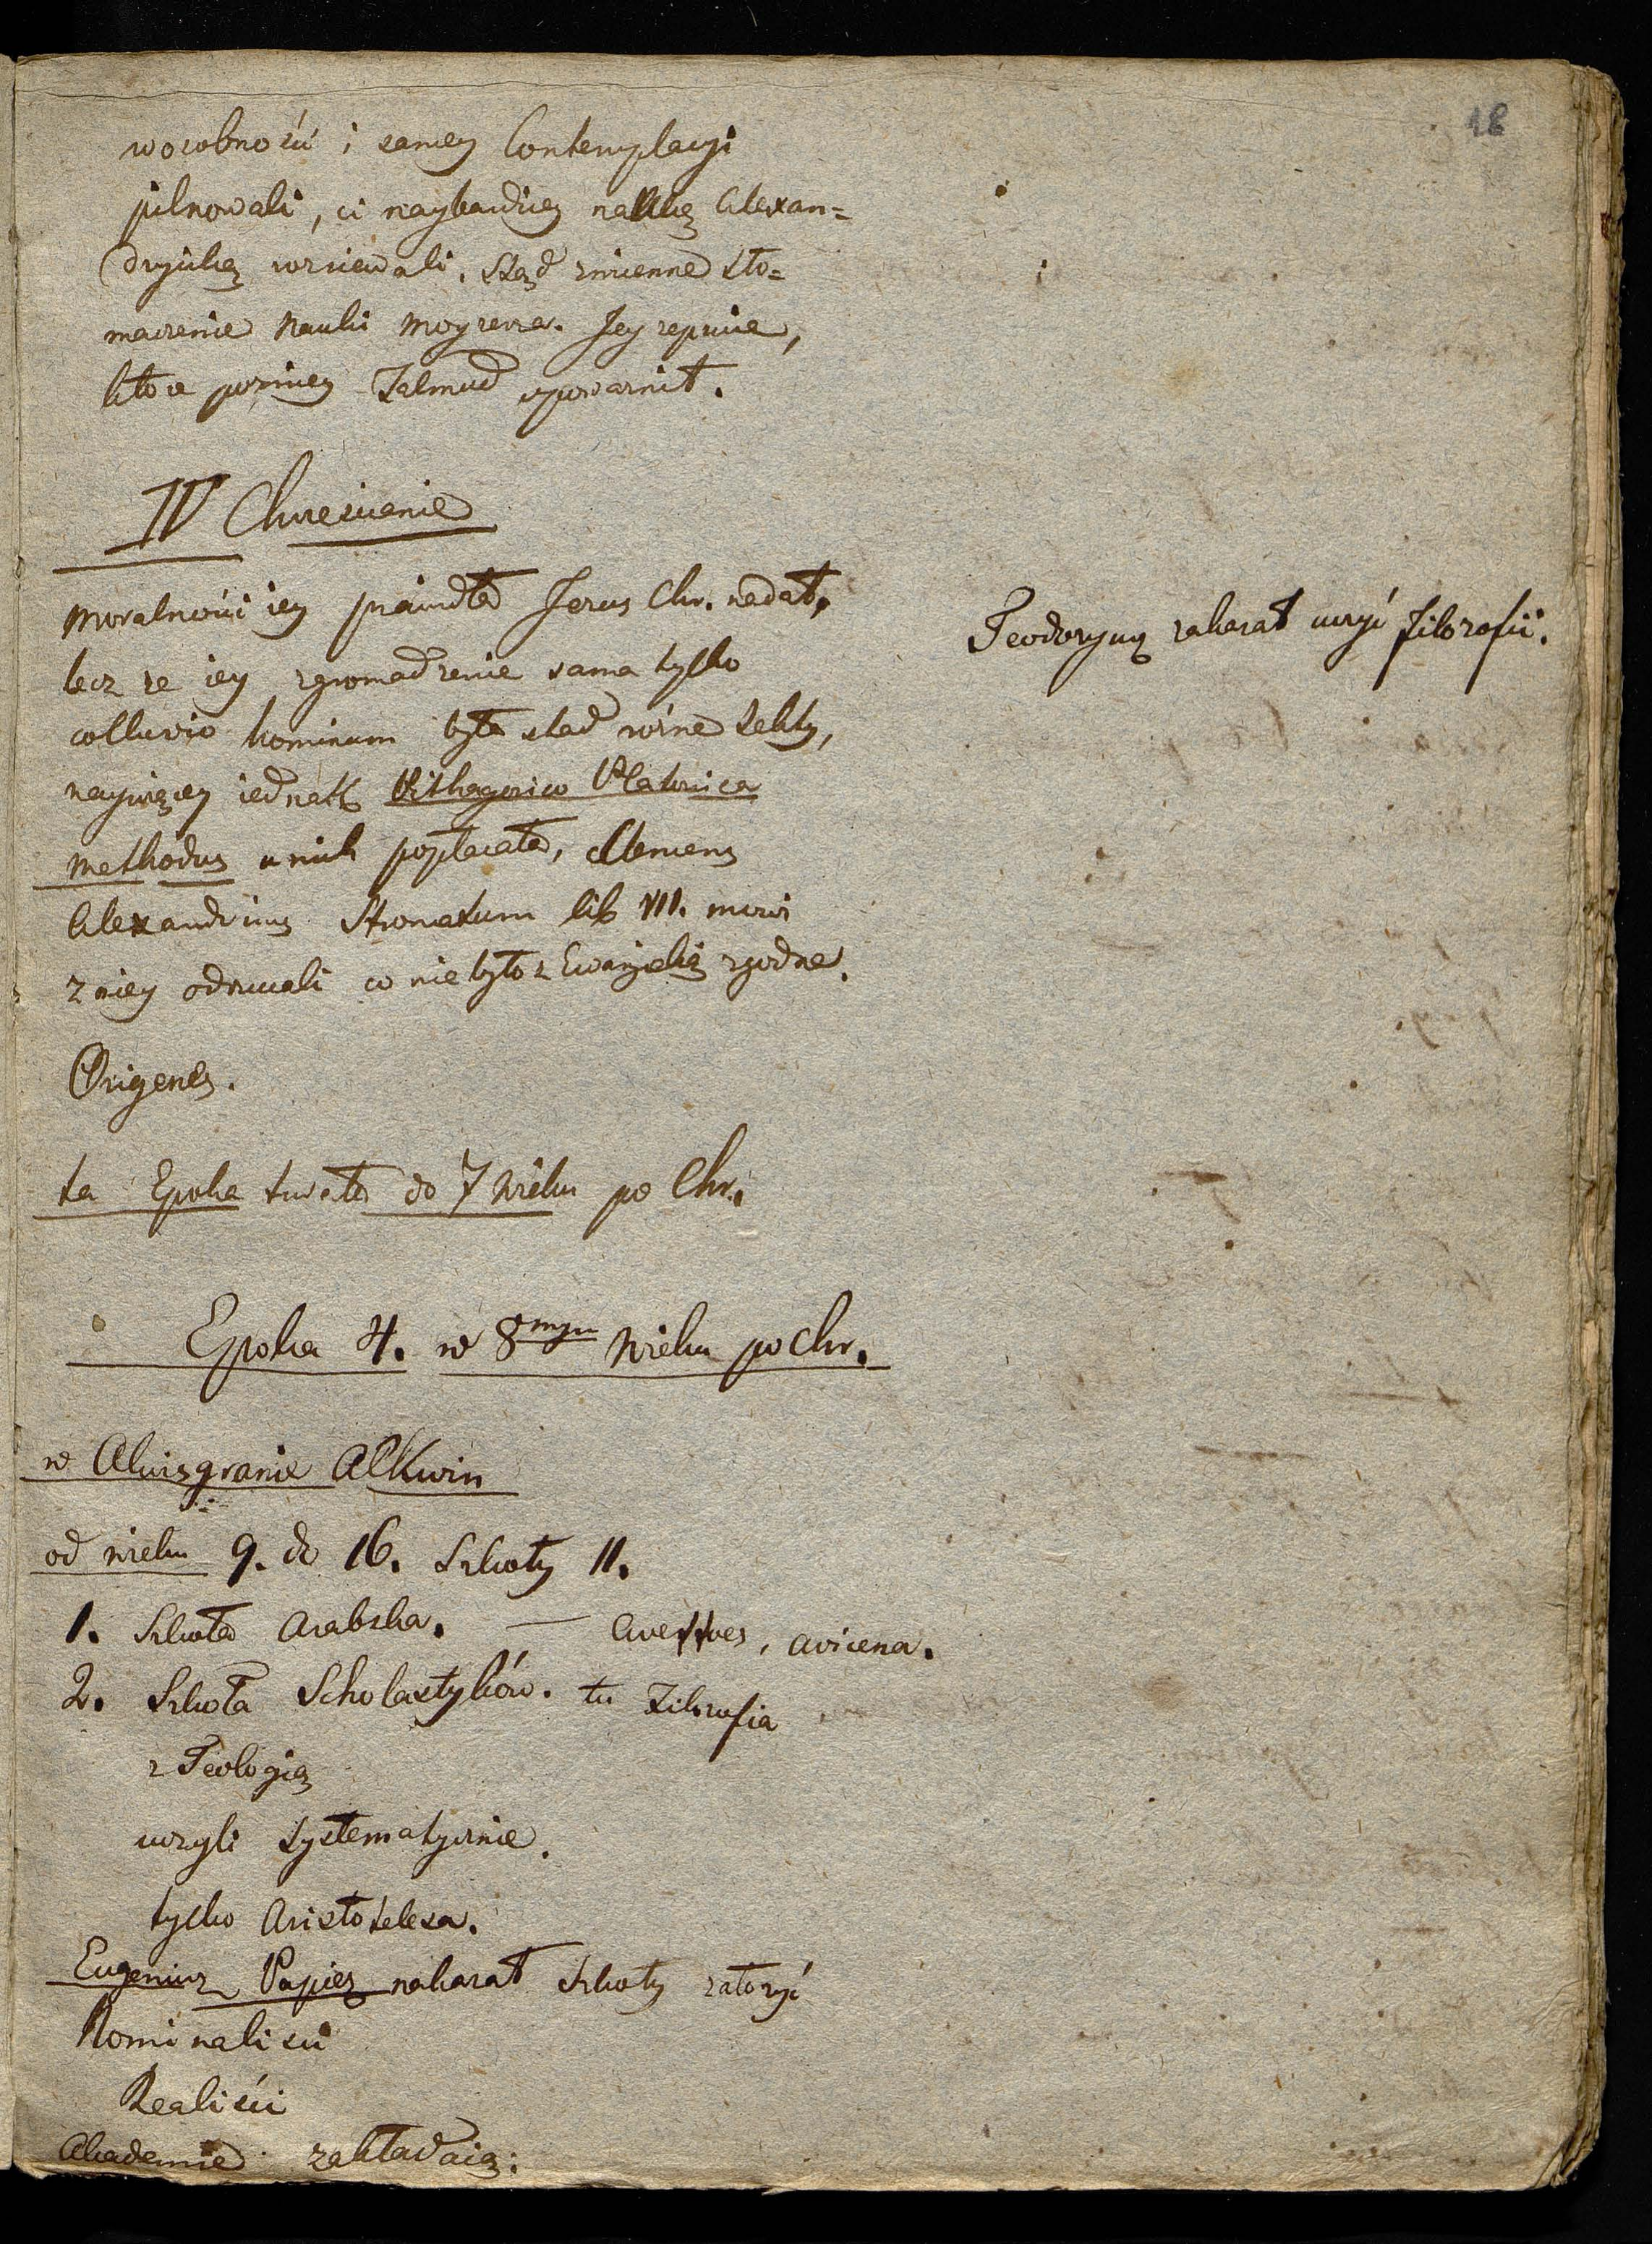 18
w osobności i samey Contemplacyi
pilnowali, ci naybardziey naukę Alexan=
dryiską rozsiewali. Stąd zmienne tło=
maczenie Nauki Moyzesza. Jey zepsucie,
które pozniey Talmud upoważnił.
IV Chrześcianie
Moralności iey prawidła Jezus Chr. nadał,
lecz ze iey zgromadzenie sama tylko
colluvio hominum była stad różne sekty,
naywięcey iednak Pithagorico Platonica
Methodus u nich popłacała, Clemens
Alexandrinus Stromatum lib VII. mówi
z niey odrzucali co nie było z Ewanjelią zgodne.
Teodoryusz zakazał uczyć filozofii.
Origenes.
ta Epoka trwała do 7 wieku po Chr.
Epoka 4. w 8mym wieku po Chr.
w Akwisgranie Alkwin
od wieku 9. do 16. Szkoły 11.
1. Szkoła Arabska. — Averroes, Avicena.
2. Szkoła Scholastyków. tu Filozofia
z Teologią
uczyli systematycznie.
tylko Aristotelesa.
Eugeniusz Papież nakazał szkoły założyć
Nominaliści
Realiści
Akademie zakładaią.